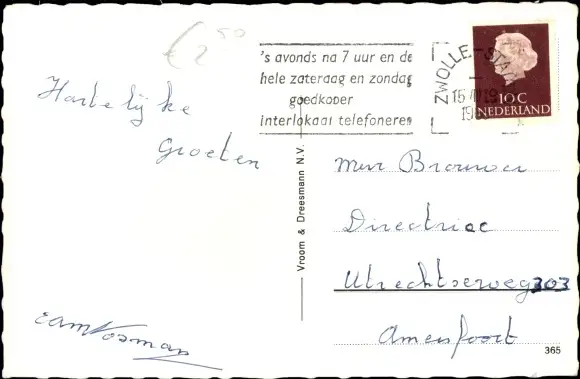 € 2 50
's avonds na 7 uur en de
hele zaterdag en zondag
goedkoper
interlokaal telefoneren
ZWOLLE-STA
10C
NEDERLAND
Hartelijke
Groeten
Vroom & Dreesmann N.V.
Mevr Brouwer
Directrice
Utrechtseweg 303
Amersfoort
365